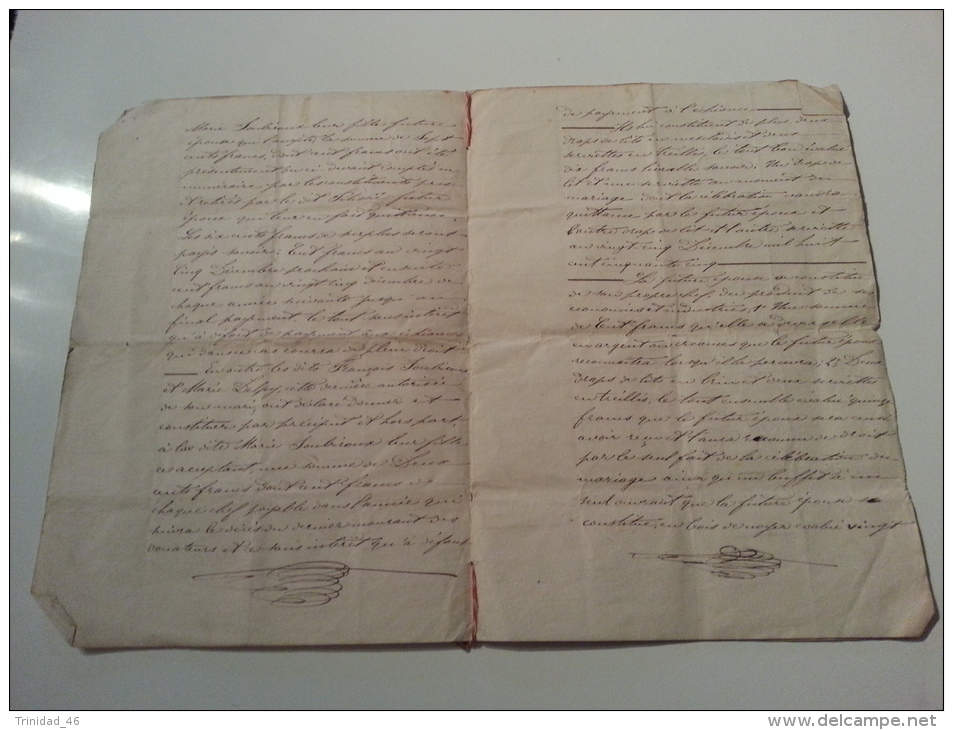 Marie Soubiroux leur fille future
épouse qui l'accepte, la somme de Sept
cents francs, dont cent francs ont été
présentement
numéraire par les constituants
et retirés par le dit futur
époux qui leur en fait quittance.
Les six cents francs de surplus seront
payés savoir: Cent francs au vingt
cinq Décembre prochain et ensuite
cent francs au vingt cinq décembre de
chaque année suivante jusqu'au
final payement, le tout sans intérêt
qu'à défaut de payement aux échéances
qui dans ce cas courra de plein droit
En outre les dits François Soubiroux
et Marie cette dernière autorisée
de son mari, ont déclaré donner et
constituer par préciput et hors part,
à la dite Marie Soubiroux leur fille
ce acceptant, une somme de Deux
cents francs dont cent francs de
chaque chef payable dans l'année qui
suivra le décès du dernier mourant des
donateurs et ce sans intérêt qu'à défaut
de payement à l'échéance
Ils lui constituent de plus deux
draps de lits en et deux
serviettes en treillis, le tout évalué
dix francs livrable savoir: Un drap de
lit et une serviette au moment du
mariage dont la célébration vaudra
quittance par le futur époux et
l'autre drap de lit et l'autre serviette
au vingt cinq Décembre mil huit
cent cinquante cinq
La future épouse se constitue
de son propre chef, du produit de ses
économies et industries, 1º Une somme
de Cent francs qu'elle a devers elle
en argent ou créances que le futur époux
reconnaitra lorsqu'il la percevra; 2º Deux
draps de lits en brin et deux serviettes
en treillis, le tout ensemble évalué quinze
francs que le futur époux sera censé
avoir reçu et l'aura reconnu de droit
par le seul fait de la célébration du
mariage ainsi qu'un buffet à un
seul ouvrant que la future épouse se
constitue, en bois de noyer évalué vingt
Trinidad_46
www.delcampe.net